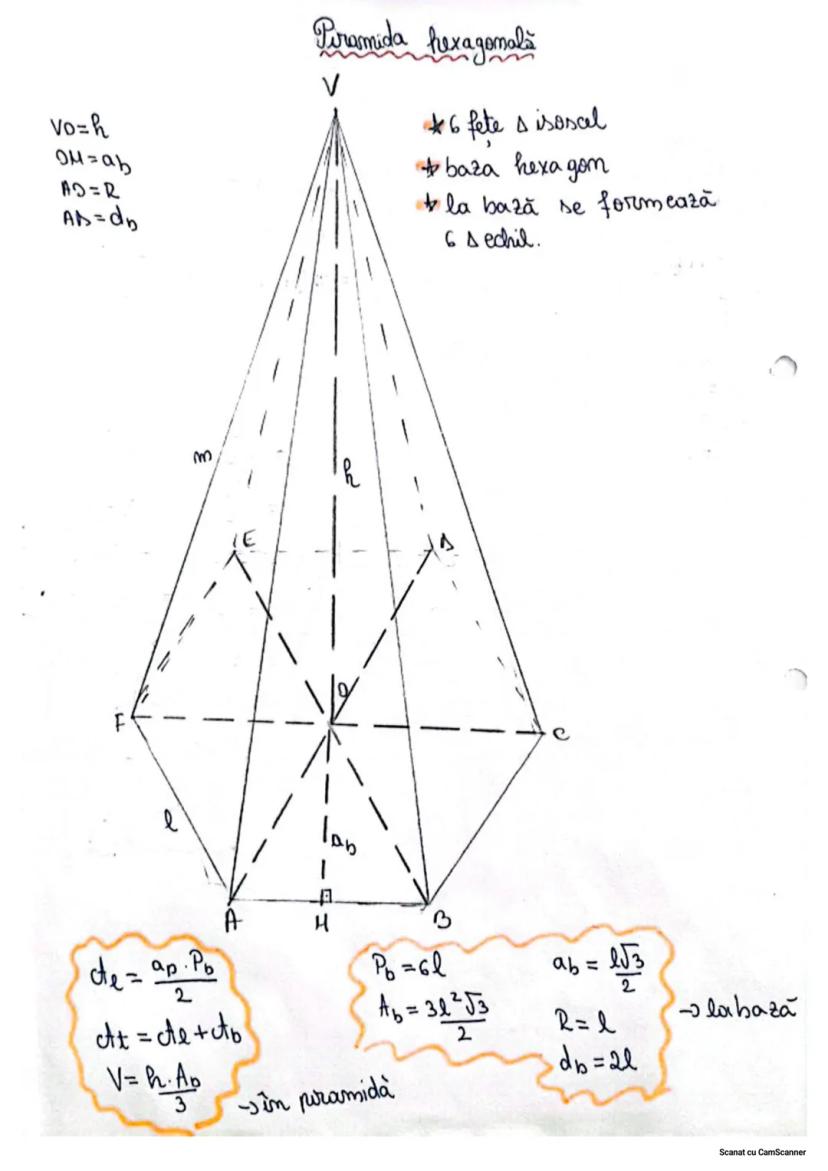 Piramida hexagonală
V
VO=h
OM=ab
AO=R
AD=db
* 6 fețe Δ isoscel
* baza hexagon
* la bază se formează
6 Δ echil.
m
h
E
D
O
F
C
l
ab
A
M
B
Al = ap · Pb / 2
At = Al + Ab
V = h · Ab / 3
→ în piramidă
Pb = 6l
Ab = 3l²√3 / 2
ab = l√3 / 2
R = l
db = 2l
→ la bază
Scanat cu CamScanner